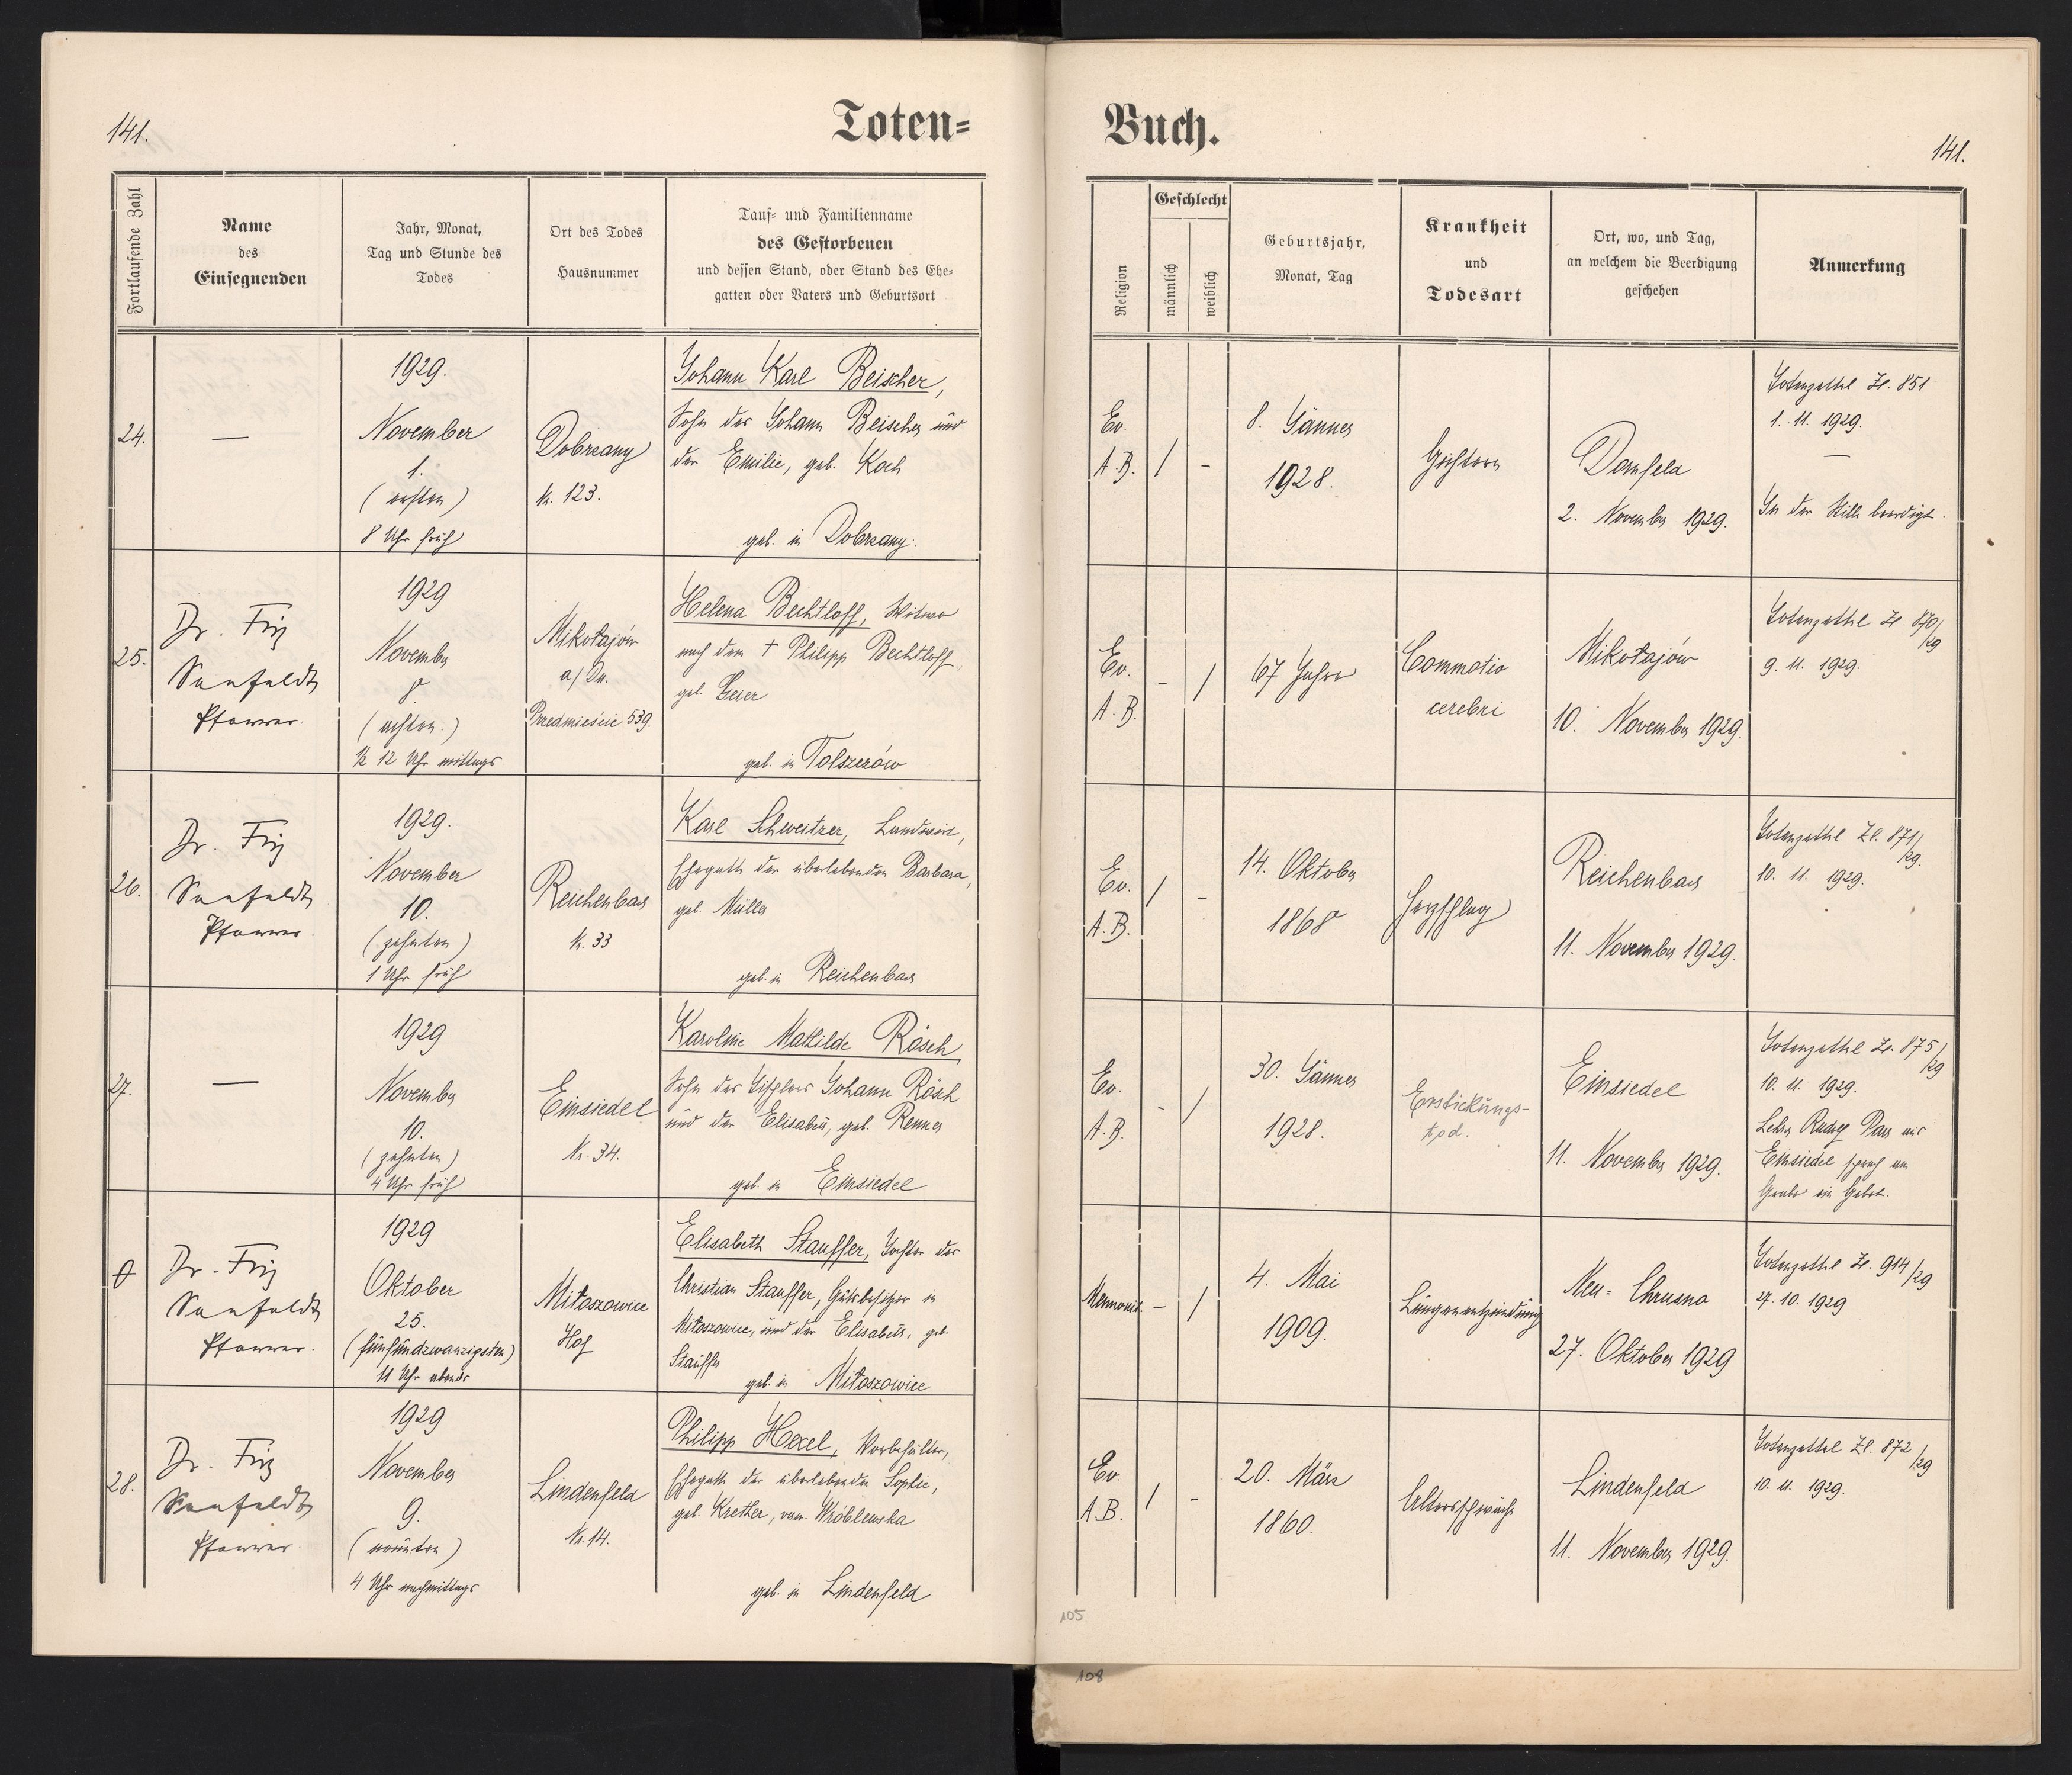 141.
Toten-
Fortlaufende Zahl
Name
des
Einsegnenden
Jahr, Monat,
Tag und Stunde des
Todes
Ort des Todes
Hausnummer
Tauf- und Familienname
des Gestorbenen
und dessen Stand, oder Stand des Ehe-
gatten oder Vaters und Geburtsort
24.
—
1929.
November
1.
(ersten)
8 Uhr früh
Dobrzany
Nr. 123.
Johann Karl Beischer,
Sohn des Johann Beischer und
der Emilie, geb. Koch
geb. in Dobrzany.
25.
Dr. Fritz
Seefeldt
Pfarrer.
1929
November
8
(achten.)
½ 12 Uhr mittags
Mikołajów
a/Dn.
Przedmieście 539.
Helena Bechtloff, Witwe
nach dem † Philipp Bechtloff,
geb. Geier
geb. in Tolszczów
26.
Dr. Fritz
Seefeldt
Pfarrer
1929.
November
10.
(zehnten)
1 Uhr früh
Reichenbach
Nr. 33
Karl Schweitzer, Landwirt,
Ehegatte der überlebenden Barbara,
geb. Müller
geb. in Reichenbach
27.
—
1929
November
10.
(zehnten)
4 Uhr früh
Einsiedel
Nr. 34.
Karoline Mathilde Rösch
Sohn des Tischlers Johann Rösch
und der Elisabeth, geb. Renner
geb. in Einsiedel
0
Dr. Fritz
Seefeldt
Pfarrer.
1929
Oktober
25.
(fünfundzwanzigsten)
11 Uhr abends
Miłoszowice
Hof
Elisabeth Stauffer, Tochter des
Christian Stauffer, Gutsbesitzer in
Miłoszowice, und der Elisabeth, geb.
Stauffer
geb. in Miłoszowice
28.
Dr. Fritz
Seefeldt
Pfarrer.
1929
November
9.
(neunten)
4 Uhr nachmittags
Lindenfeld
Nr. 14.
Philipp Hexel, Vorbehälter,
Ehegatte der überlebenden Sophie,
geb. Kretler, verw. Wróblewska
geb. in Lindenfeld
Buch.
141.
Religion
Geschlecht
männlich
weiblich
Geburtsjahr,
Monat, Tag
Krankheit
und
Todesart
Ort, wo, und Tag,
an welchem die Beerdigung
geschehen
Anmerkung
Ev.
A.B.
/
-
8. Jänner
1928.
Dornfeld
2. November 1929.
Totenzettel Zl. 851
1. 11. 1929.
—
In der Stille beerdigt.
Ev.
A.B.
-
/
67 Jahre
Commotio
cerebri
Mikołajów
10. November 1929.
Totenzettel Zl. 870/29
9. 11. 1929.
Ev.
A.B.
/
-
14. Oktober
1868
Herzschlag
Reichenbach
11. November 1929.
Totenzettel Zl. 871/29.
10. 11. 1929.
Ev.
A.B.
-
/
30. Jänner
1928.
Erstickungs-
tod.
Einsiedel
11. November 1929.
Totenzettel Zl. 875/29
10. 11. 1929.
Lehrer aus
Einsiedel sprach am
Grabe ein Gebet.
Mennonit.
—
/
4. Mai
1909.
Lungenentzündung
Neu-Chrusno
27. Oktober 1929
Totenzettel Zl. 914/29
27. 10. 1929
Ev.
A.B.
/
-
20. März
1860.
Altersschwäche
Lindenfeld
11. November 1929.
Totenzettel Zl. 872/29
10. 11. 1929.
105
108